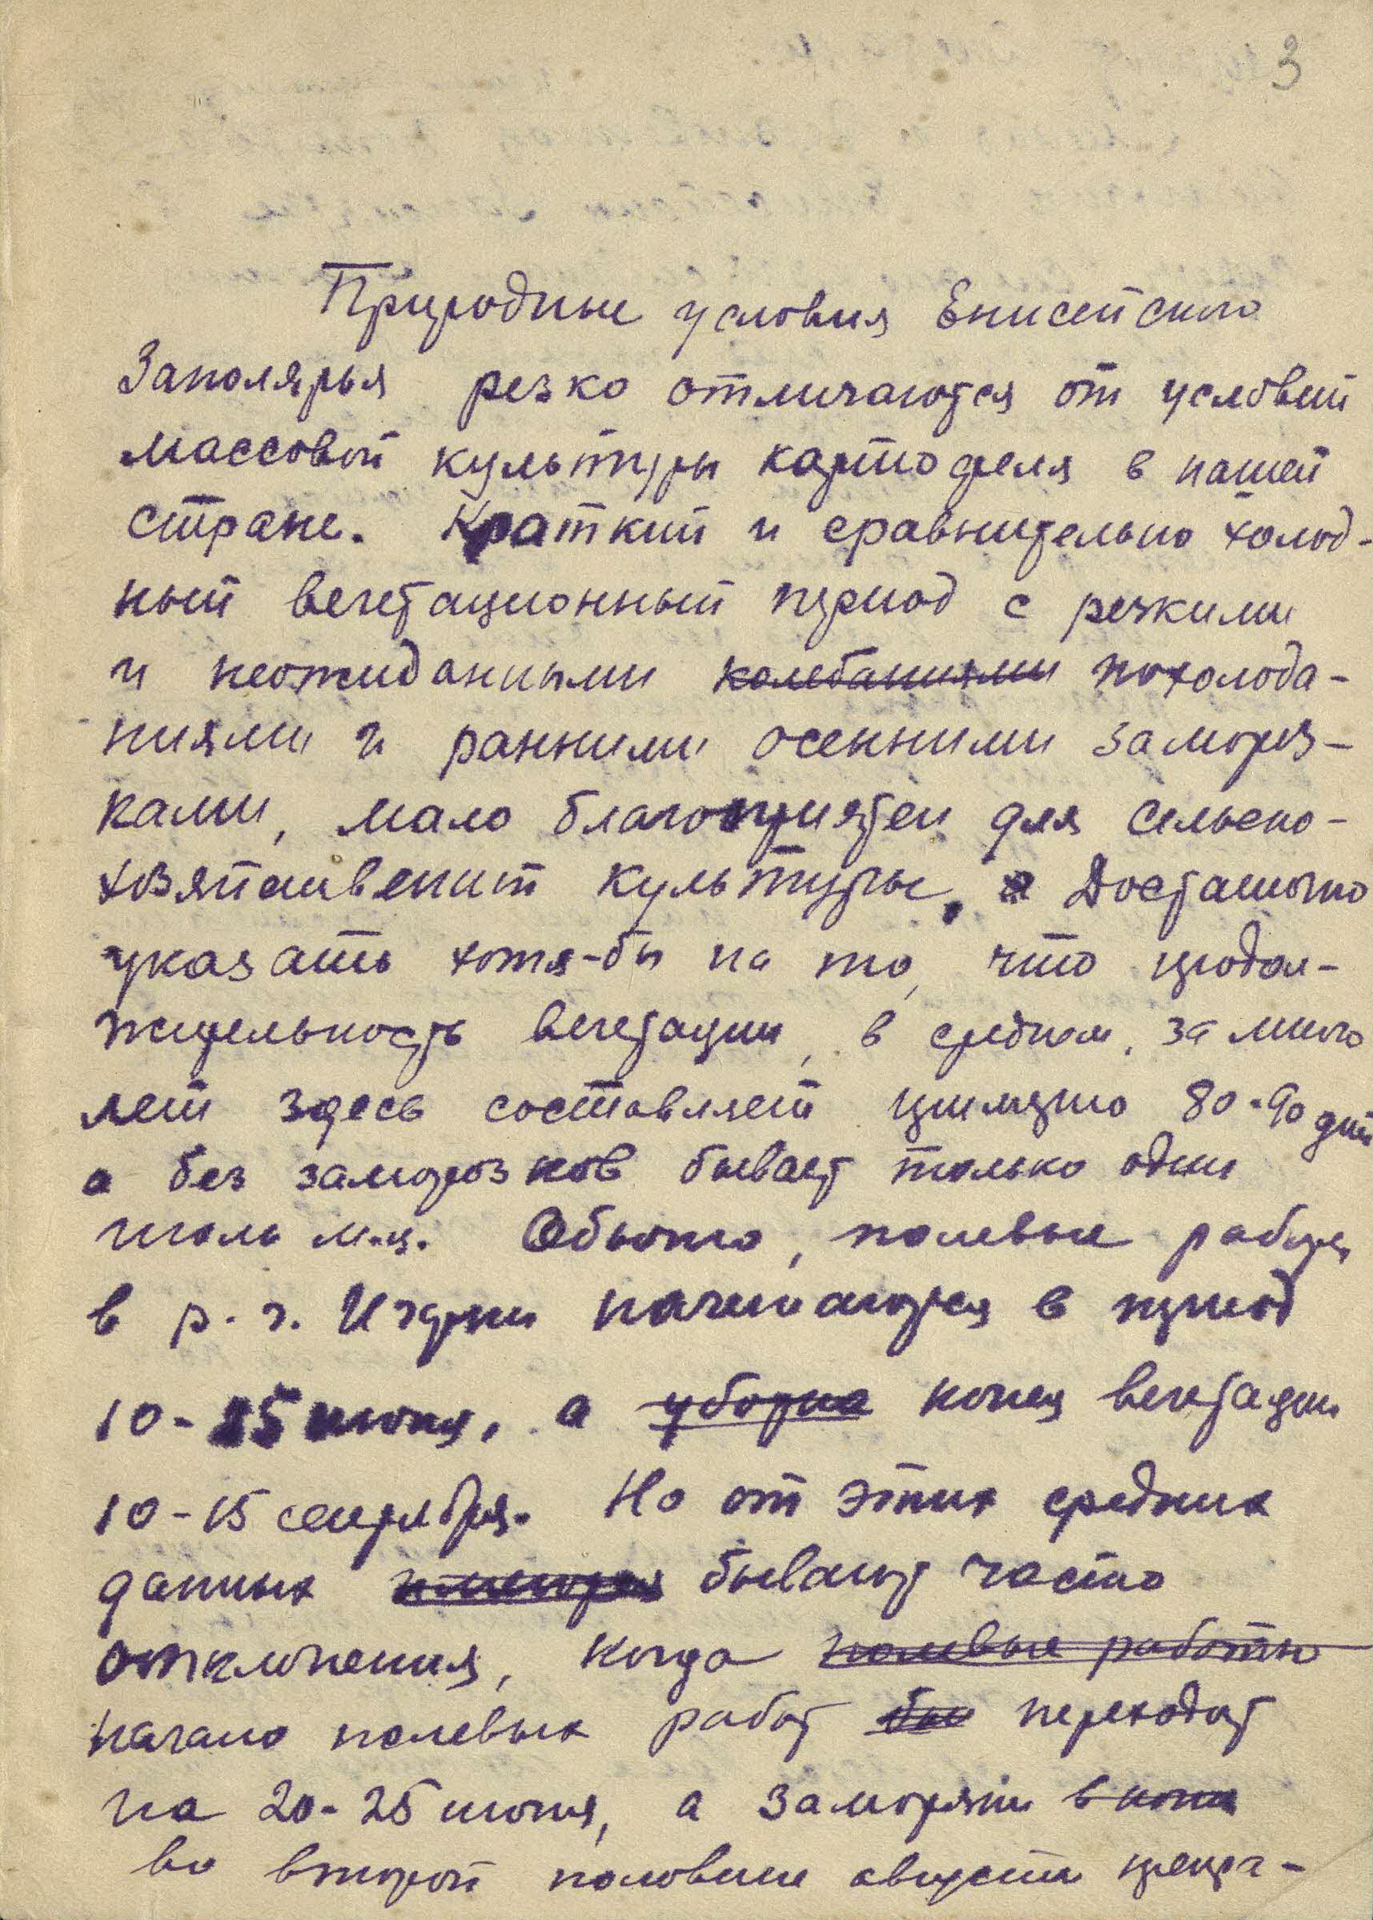 3
Природные условия Енисейского
Заполярья резко отличаются от условий
массовой культуры картофеля в нашей
стране. Краткий и сравнительно холод-
ный вегетационный период с резкими
и неожиданными колебаниями похолода-
ниями и ранними осенними замороз-
ками, мало благоприятен для сельско-
хозяйственной культуры. Достаточно
указать хотя-бы на то, что продол-
жительность вегетации, в среднем, за много
лет здесь составляет примерно 80-90 дней
а без заморозков бывает только один
июль м-ц. Обычно, полевые работы
в р. г. Игарки начинаются в период
10-15 июня, а уборка конец вегетации
10-15 сентября. Но от этих средних
данных бывают часто
отклонения, когда полевые работы
начало полевых работ бы переходит
на 20-25 июня, а заморозки в конце
во второй половине августа прекра-